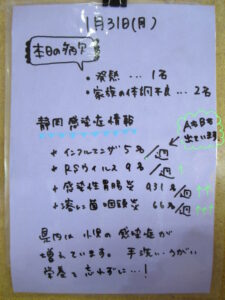 1月31日(月)
本日の欠席
・発熱 … 1名
・家族の体調不良 … 2名
静岡感染症情報
AもBも
出ています
+ インフルエンザ 5名/週
+ RSウイルス 9名/週
+ 感染性胃腸炎 931名/週 ↑↑
+ 溶レン菌咽頭炎 66名/週 ↑
県内は小児の感染症が
増えています。手洗い、うがい
栄養を忘れずに…!